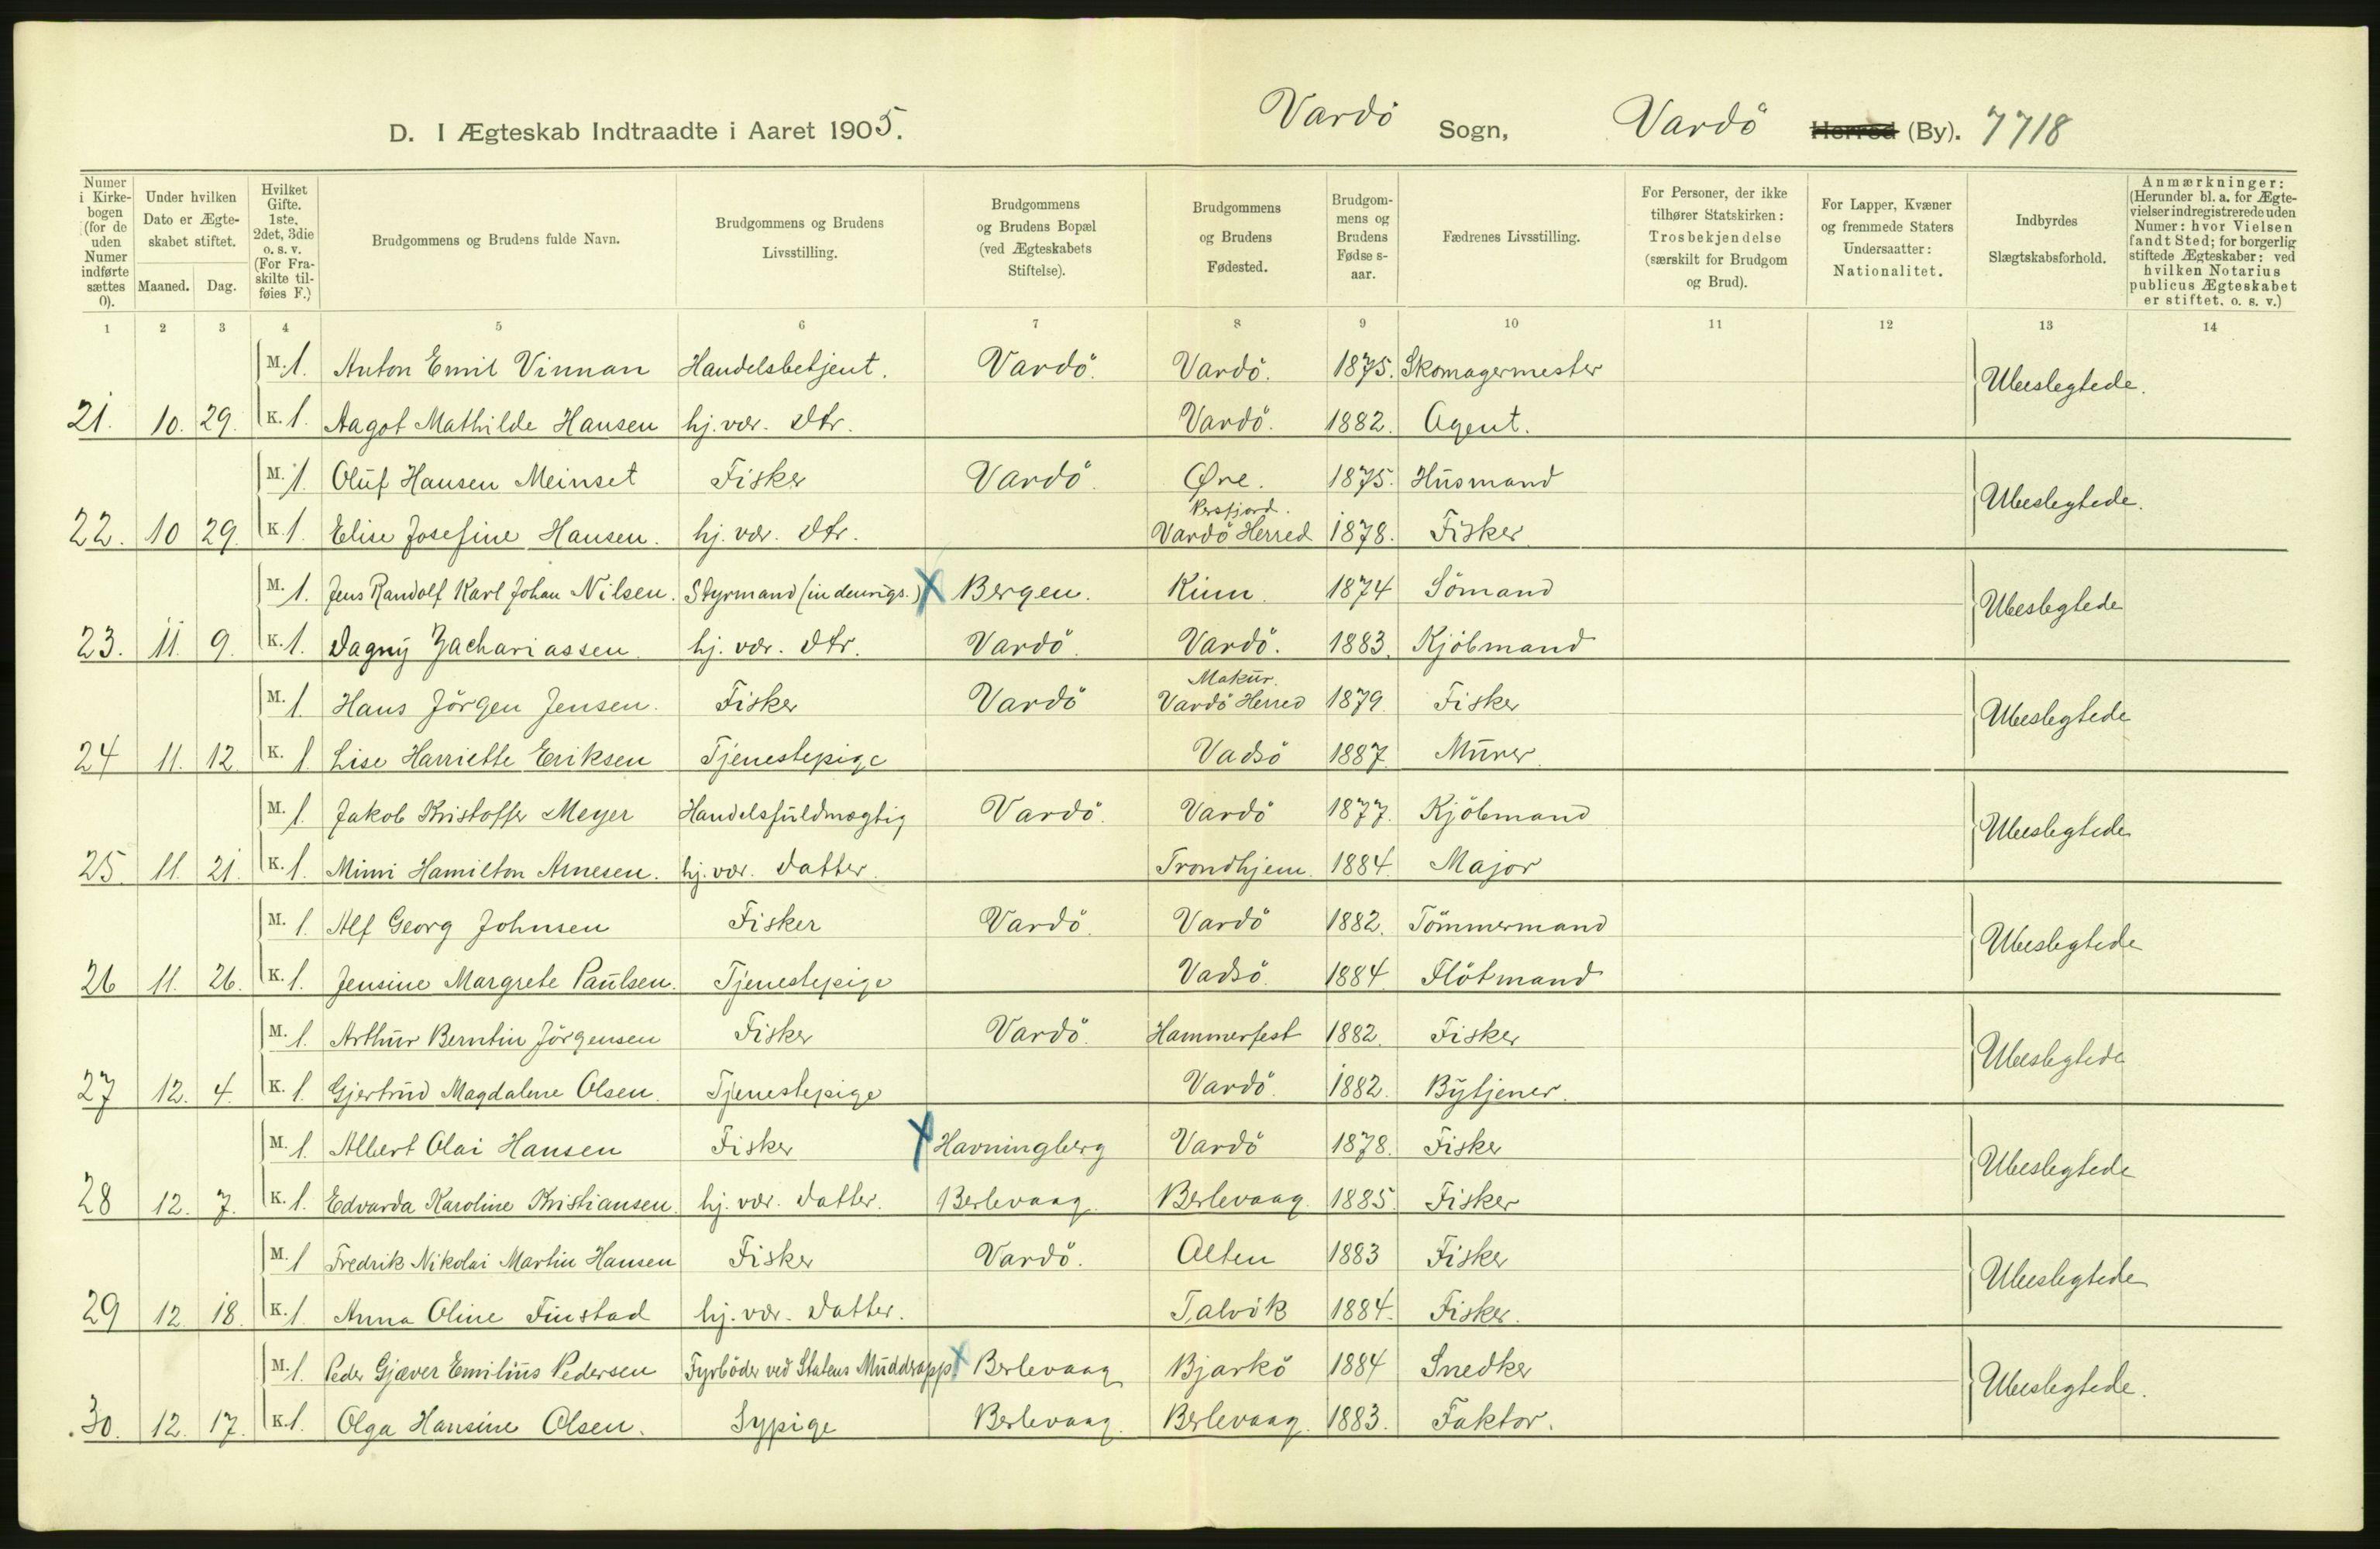 D. I Ægteskab Indtraadte i Aaret 1905. Vardö Sogn, Vardö Herred (By). 7718
Numer i Kirkebogen (for de uden Numer indførte sættes 0). | Under hvilken Dato er Ægteskabet stiftet. Maaned. Dag. | Hvilket Gifte. 1ste. 2det, 3die o. s. v. (For Fraskilte tilføies F.) | Brudgommens og Brudens fulde Navn. | Brudgommens og Brudens Livsstilling. | Brudgommens og Brudens Bopæl (ved Ægteskabets Stiftelse). | Brudgommens og Brudens Fødested. | Brudgommens og Brudens Fødse s-aar. | Fædrenes Livsstilling. | For Personer, der ikke tilhører Statskirken: Trosbekjendelse (særskilt for Brudgom og Brud). | For Lapper, Kvæner og fremmede Staters Undersaatter: Nationalitet. | Indbyrdes Slægtskabsforhold. | Anmærkninger: (Herunder bl. a. for Ægtevielser indregistrerede uden Numer: hvor Vielsen fandt Sted; for borgerlig stiftede Ægteskaber: ved hvilken Notarius publicus Ægteskabet er stiftet. o. s. v.)
1 2 3 4 5 6 7 8 9 10 11 12 13 14
M. 1. Anton Emil Vinnan Handelsbetjent. Vardö. Vardö. 1875. Skomagermester Ubeslegtede.
21. 10. 29. K. 1. Aagot Mathilde Hansen hj. vær. Dtr. Vardö. 1882. Agent.
M. 1. Oluf Hansen Meinset Fisker Vardö. Øre. 1875. Husmand Ubeslegtede.
22. 10 29. K 1. Elise Josefine Hansen. hj. vær. Dtr. Persfjord. Vardö Herred 1878. Fisker.
M. 1. Jens Randolf Karl Johan Nilsen. Styrmand (indenrigs.) X Bergen. Kinn. 1874 Sömand Ubeslegtede
23. 11. 9. K. 1. Dagny Zachariassen. hj. vær. Dtr. Vardö. Vardö. 1883. Kjöbmand
M. 1. Hans Jörgen Jensen. Fisker Vardö Makur. Vardö Herred 1879. Fisker Ubeslegtede
24 11. 12. K. 1. Lise Harriette Eriksen Tjenestepige Vadsö 1887. Murer.
M. 1. Jakob Kristoffer Meyer Handelsfuldmægtig Vardö. Vardö 1877. Kjöbmand Ubeslegtede
25. 11. 21. K. 1. Mimi Hamilton Arnesen. hj. vær. Datter. Trondhjem. 1884. Major
M. 1. Alf Georg Johnsen Fisker Vardö. Vardö 1882. Tömmermand Ubeslegtede
26 11. 26. K. 1. Jensine Margrete Paulsen. Tjenestepige Vadsö. 1884. Flötmand
M. 1. Arthur Berntin Jörgensen Fisker Vardö. Hammerfest 1882. Fisker Ubeslegtede
27 12. 4. K. 1. Gjertrud Magdalene Olsen. Tjenestepige Vardö. 1882. Bytjener.
M. 1. Albert Olai Hansen Fisker X Havningberg Vardö 1878. Fisker Ubeslegtede
28 12. 7. K. 1. Edvarda Karoline Kristiansen. hj. vær. Datter. Berlevaag. Berlevaag. 1885. Fisker
M. 1 Fredrik Nikolai Martin Hansen Fisker Vardö. Alten 1883 Fisker Ubeslegtede
29 12. 18. K. 1. Anna Oline Finstad hj. vær. Datter. Talvik 1884. Fisker.
M. 1. Peder Gjæver Emilius Pedersen Fyrböder ved Statens Mudderapp. X Berlevaag Bjarkö 1884 Snedker Ubeslegtede.
30. 12. 17. K. 1. Olga Hansine Olsen. Sypige Berlevaag. Berlevaag. 1883. Faktor.